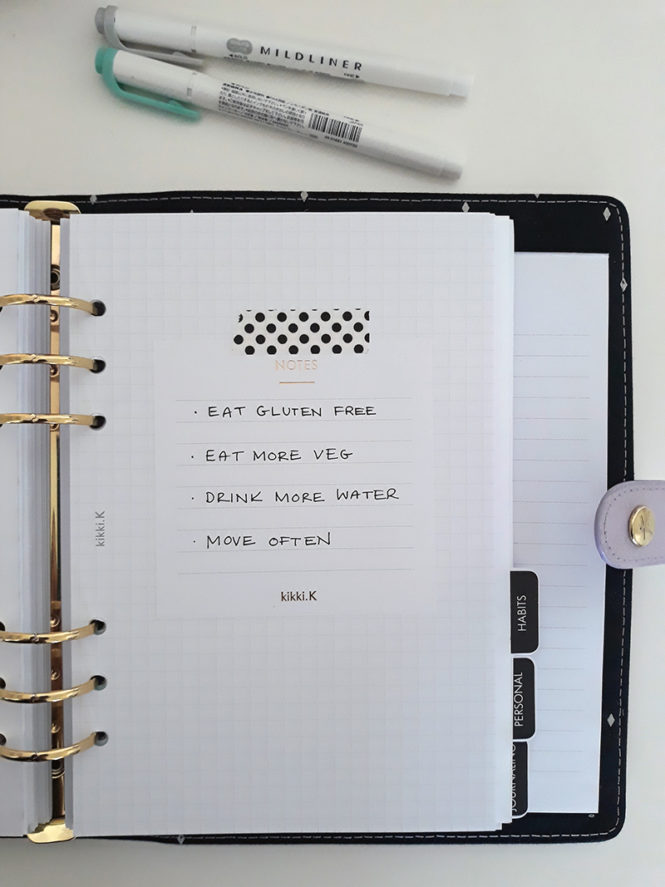 MILDLINER
NOTES
· EAT GLUTEN FREE
· EAT MORE VEG
· DRINK MORE WATER
· MOVE OFTEN
kikki.K
kikki.K
HABITS
PERSONAL
JOURNALING